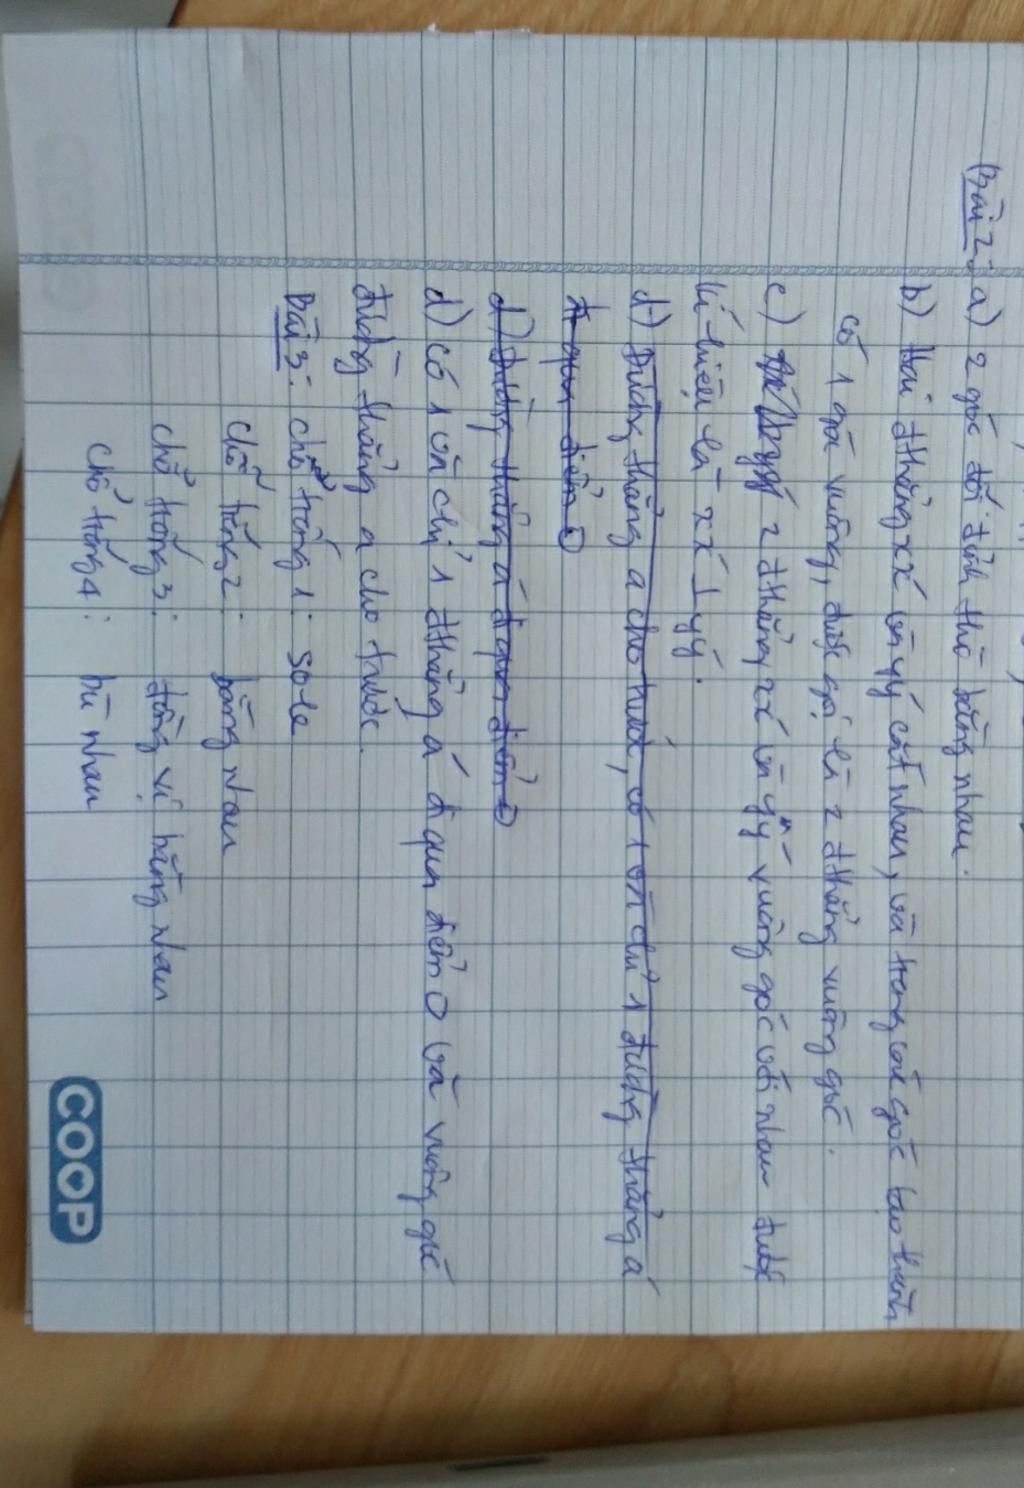 Bài 2: a) 2 góc đối đỉnh thì bằng nhau.
b) Hai đthẳng xx' và yy' cắt nhau, và trong các góc tạo thành
có 1 góc vuông, được gọi là 2 đthẳng vuông góc.
c) 2 đthẳng xx' và yy' vuông góc với nhau được
kí hiệu là xx' ⊥ yy'.
d) Đường thẳng a cho trước, có 1 và chỉ 1 đường thẳng a'
đi qua điểm O
d) đường thẳng a' đi qua điểm O
d) có 1 và chỉ 1 đthẳng a' đi qua điểm O và vuông góc
đường thẳng a cho trước.
Bài 3: chỗ trống 1: so le
chỗ trống 2: bằng nhau
chỗ trống 3: đồng vị bằng nhau
chỗ trống 4: bù nhau
COOP